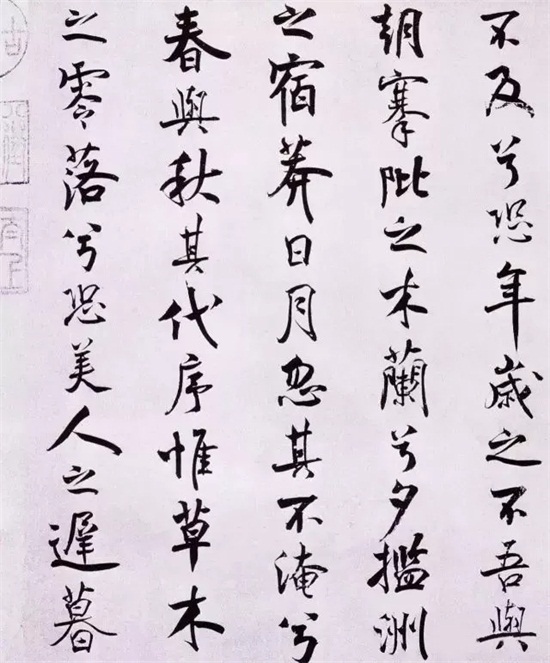 不及兮恐年歲之不吾與
朝搴阰之木蘭兮夕㩜洲
之宿莽日月忽其不淹兮
春與秋其代序惟草木
之零落兮恐美人之遲暮